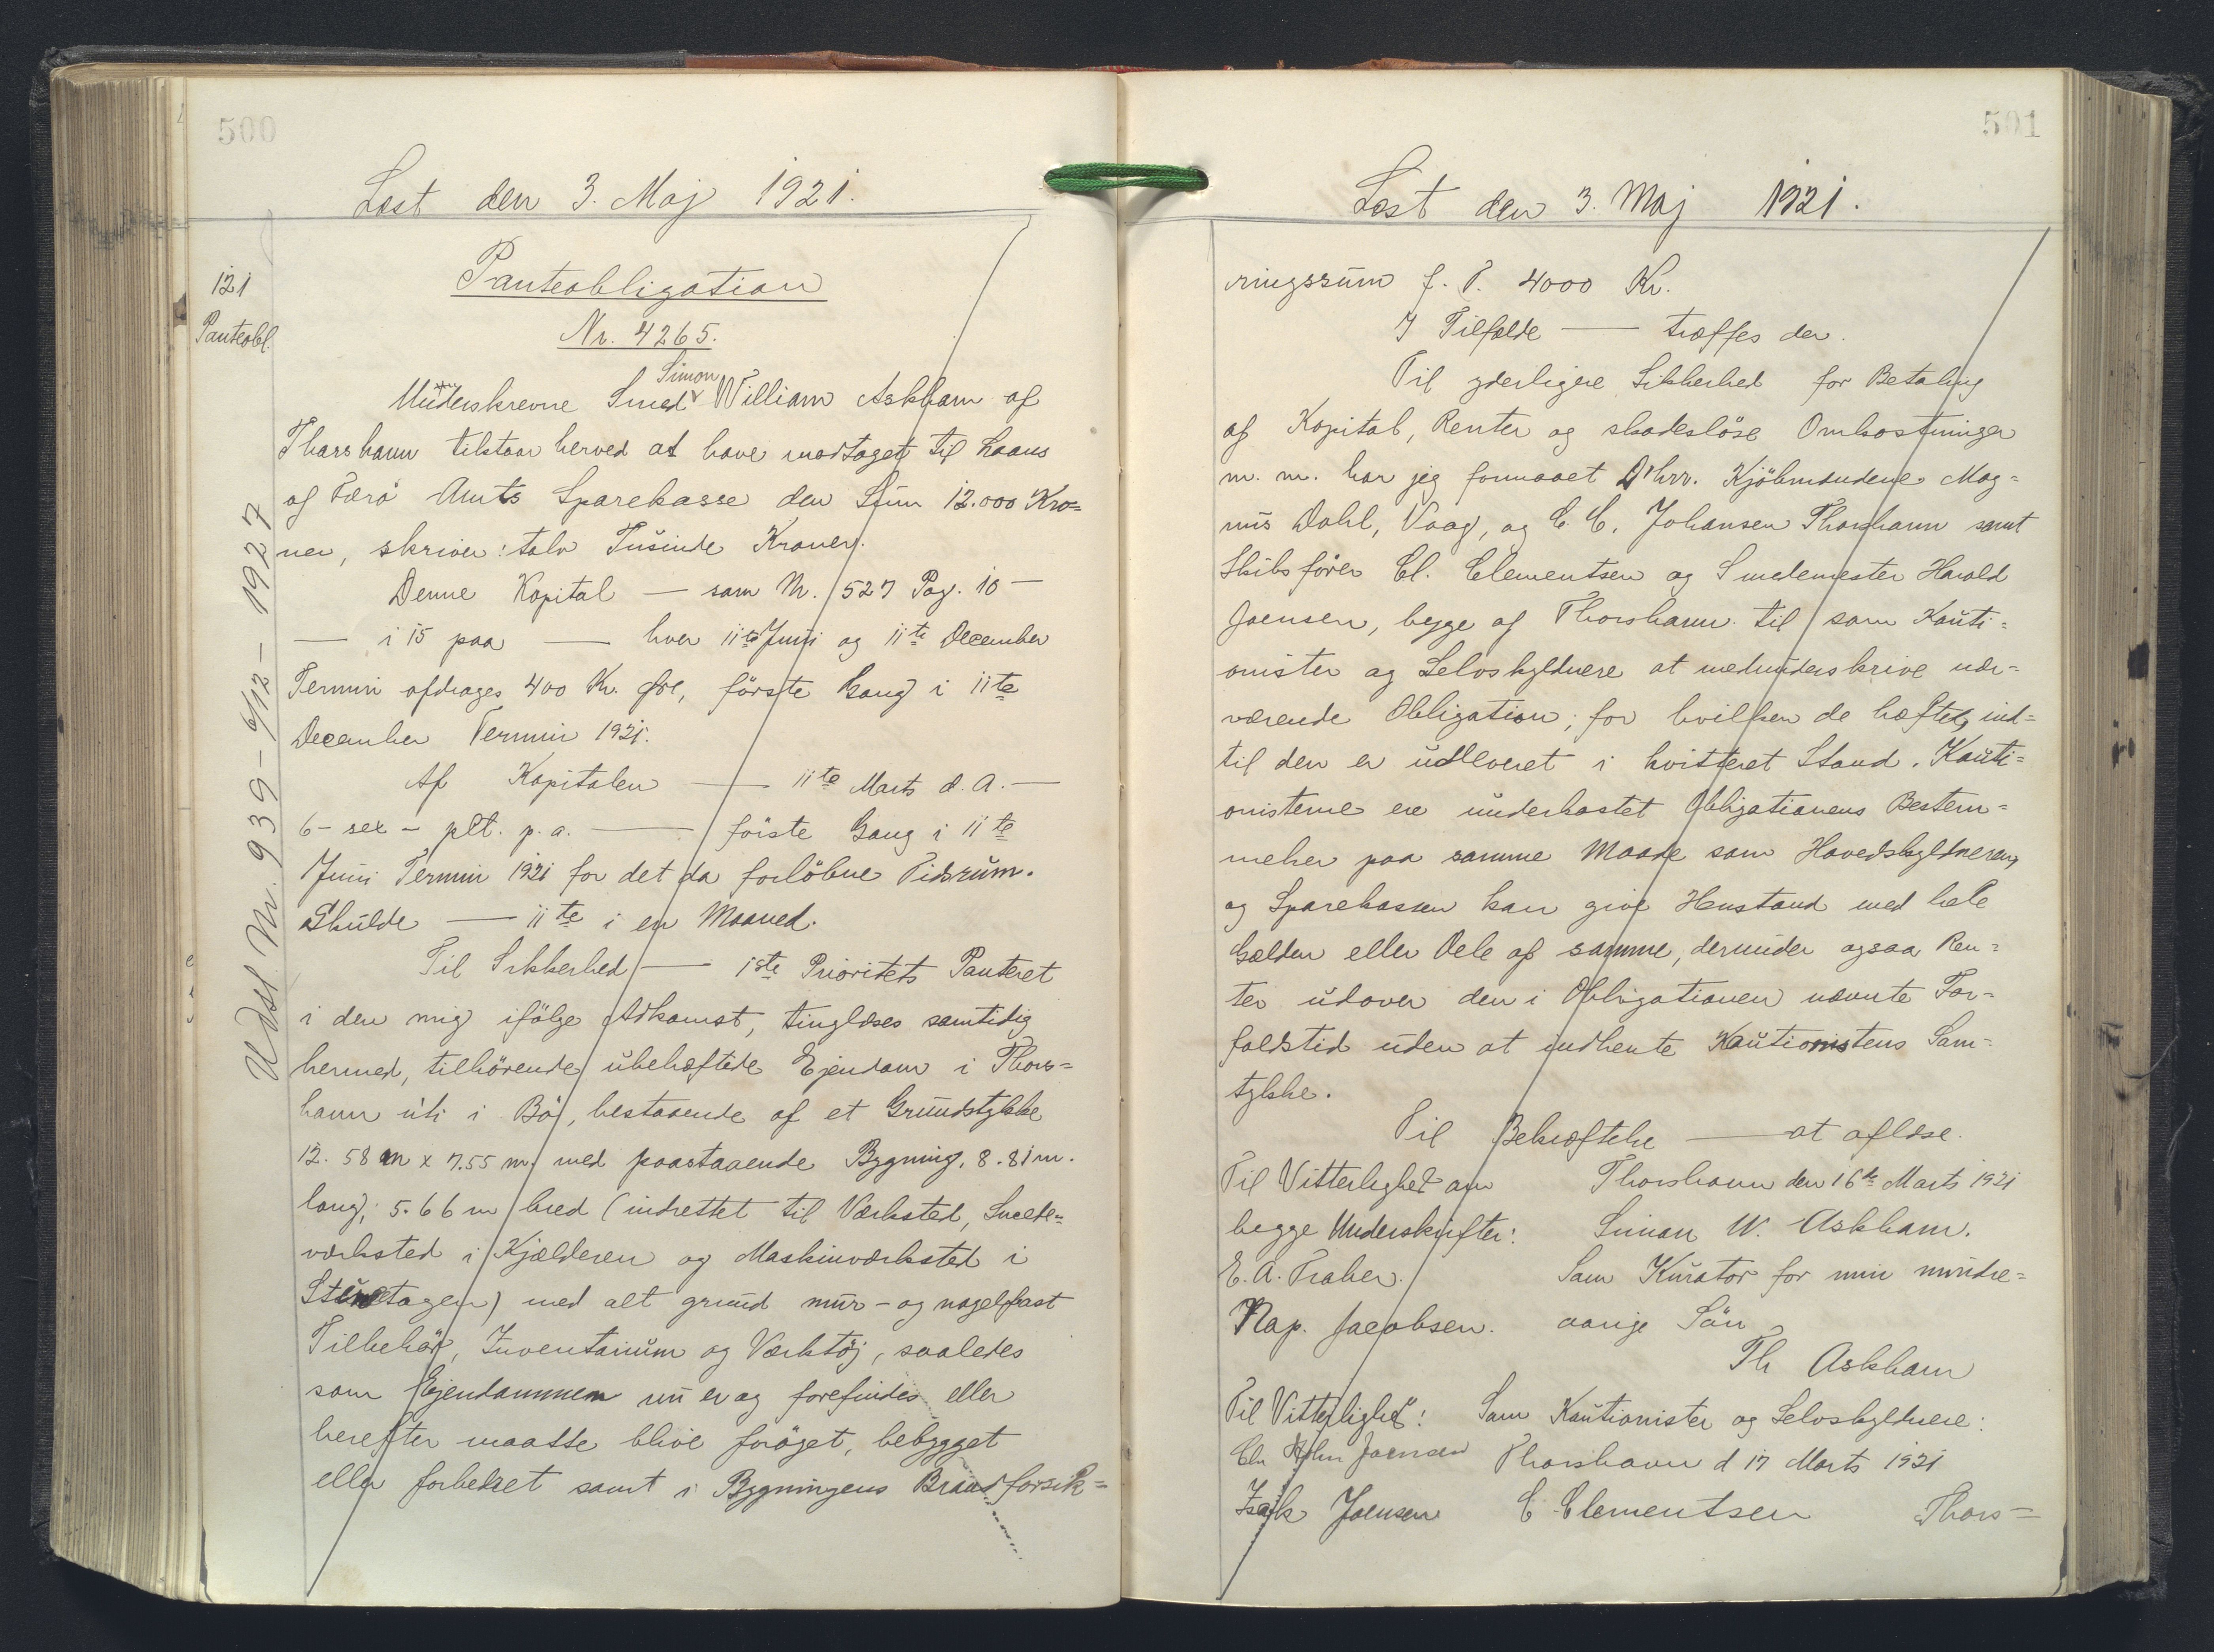 500
Læst den 3. Maj 1921.
121
Panteobl.
Udsl. Nr. 939 - 6/12 - 1927
Panteobligation
Nr. 4265.
Simon
Underskrevne Smed William Askham af
Thorshavn tilstaar herved at have modtaget til Laans
af Færø Amts Sparekasse den Sum 12.000 Kro=
ner, skriver: tolv Tusinde Kroner.
Denne Kapital — som Nr. 527 Pag. 10 —
— i 15 paa — hver 11te Juni og 11te December
Termin afdrages 400 Kr. Øre, förste Gang i 11te
December Termin 1921.
Af Kapitalen — 11te Marts d. A. —
6 - sex - pCt. p. a. — förste Gang i 11te
Juni Termin 1921 for det da forlöbne Tidsrum.
Skulde — 11te i en Maaned.
Til Sikkerhed — 1ste Prioritets Panteret
i den mig ifölge Adkomst, tinglæses samtidig
hermed, tilhörende ubehæftede Ejendom i Thors=
havn úti i Bö, bestaaende af et Grundstykke
12.58 m x 7.55 m. med paastaaende Bygning, 8.81 m.
lang, 5.66 m bred (indrettet til Værksted, Smede=
værksted i Kjælderen og Maskinværksted i
Stueetagen) med alt grund mur - og nagelfast
Tilbehör, Inventarium og Værktöj, saaledes
som Ejendommen nu er og forefindes eller
herefter maatte blive foröget, bebygget
eller forbedret samt i Bygningens Brandforsik=
501
Læst den 3. Maj 1921.
ringssum f. T. 4000 Kr.
I Tilfælde — træffes der.
Til yderligere Sikkerhed for Betaling
af Kapital, Renter og skadeslöse Omkostninger
m. m. har jeg formaaet DHrr. Kjöbmændene Mag=
nus Dahl, Vaag, og C. C. Johansen Thorshavn samt
Skibsförer Cl. Clementsen og Smedemester Harald
Joensen, begge af Thorshavn til som Kauti=
onister og Selvskyldnere at medunderskrive nær=
værende Obligation; for hvilken de hæfter, ind=
til den er udleveret i kvitteret Stand. Kauti=
onisterne ere underkastet Obligationens Bestem=
melser paa samme Maade som Hovedskyldneren,
og Sparekassen kan give Henstand med hele
Gælden eller Dele af samme, derunder ogsaa Ren=
ter udover den i Obligationen nævnte For=
faldstid uden at indhente Kautionistens Sam=
tykke.
Til Bekræftelse — at aflæse.
Til Vitterlighed om Thorshavn den 16de Marts 1921
begge Underskrifter: Simon W. Askham.
E. A. Traber. Som Kurator for min mindre=
Nap. Jacobsen. aarige Sön
Th Askham
Til Vitterlighed: Som Kautionister og Selvskyldnere:
Joensen Thorshavn d 17 Marts 1921
Isak Joensen C Clementsen Thors=